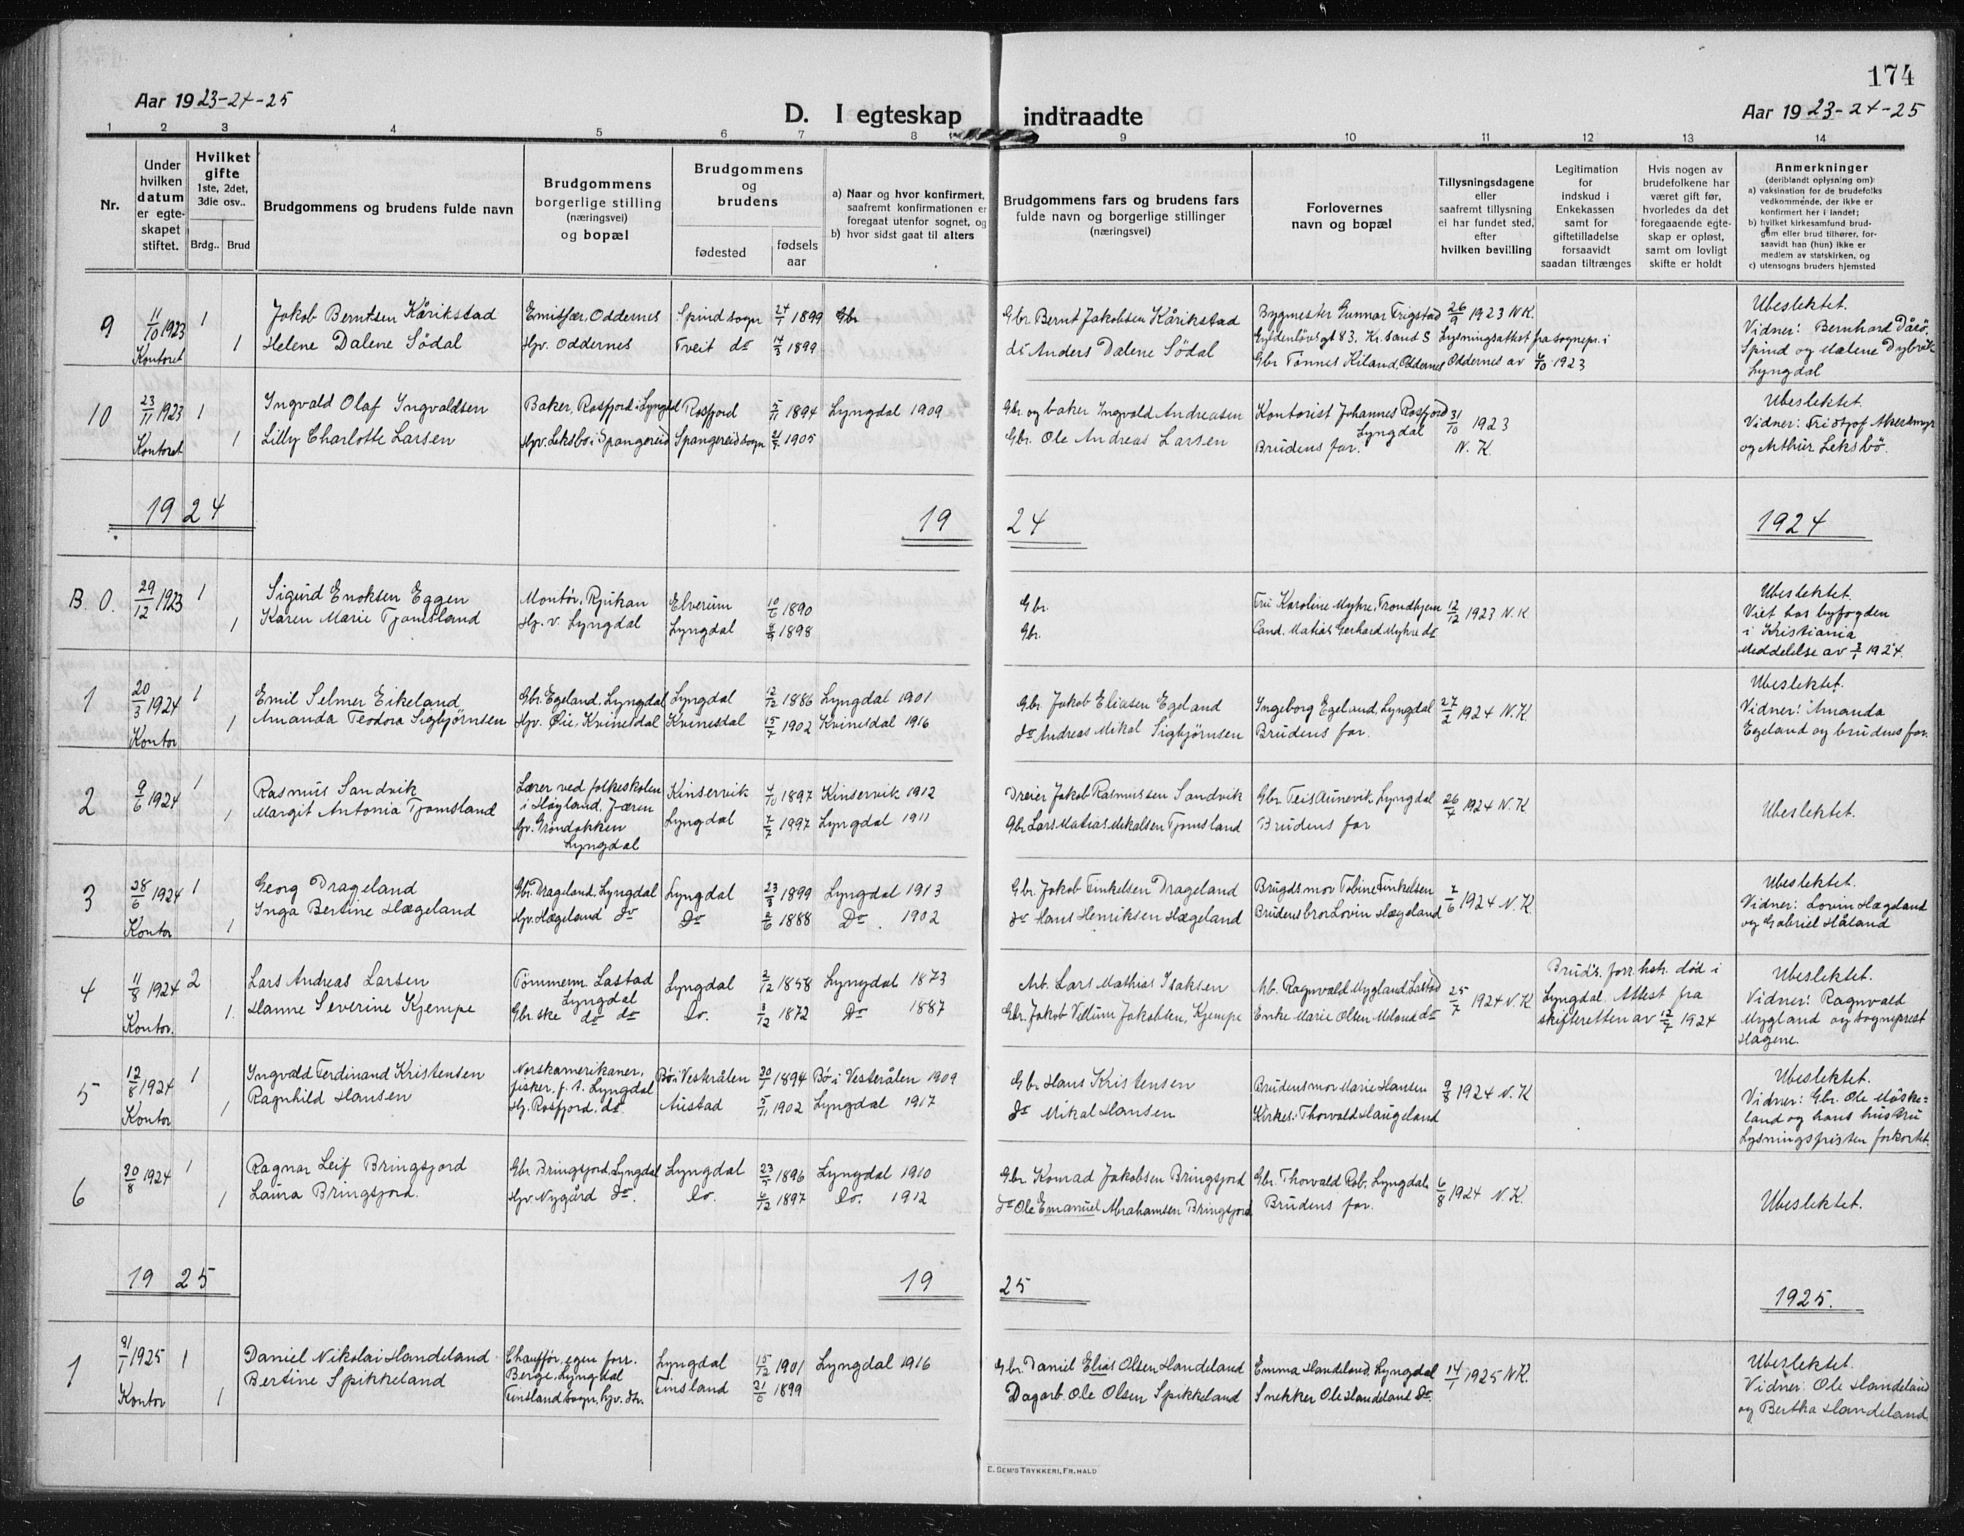 174
Aar 1923-24-25
D. I egteskap indtraadte
Aar 1923-24-25
1 2 3 4 5 6 7 8 9 10 11 12 13 14
Nr.
Under hvilken datum er egteskapet stiftet.
Hvilket gifte 1ste, 2det, 3die osv..
Brdg.. Brud
Brudgommens og brudens fulde navn
Brudgommens borgerlige stilling (næringsvei) og bopæl
Brudgommens og brudens
fødested
fødsels aar
a) Naar og hvor konfirmert, saafremt konfirmationen er foregaat utenfor sognet, og
b) hvor sidst gaat til alters
Brudgommens fars og brudens fars fulde navn og borgerlige stillinger (næringsvei)
Forlovernes navn og bopæl
Tillysningsdagene eller saafremt tillysning ei har fundet sted, efter hvilken bevilling
Legitimation for indskud i Enkekassen samt for giftetilladelse forsaavidt saadan tiltrænges
Hvis nogen av brudefolkene har været gift før, hvorledes da det foregaaende egteskap er opløst, samt om lovligt skifte er holdt
Anmerkninger
(deriblandt oplysning om:
a) vaksination for de brudefolks vedkommende, der ikke er konfirmert her i landet;
b) hvilket kirkesamfund brudgom eller brud tilhører, forsaavidt han (hun) ikke er medlem av statskirken, og
c) utensogns bruders hjemsted
9 11/10 1923 1 Jakob Berntsen Kårikstad Emisfær, Oddernes Spind sogn 24/1 1899 Gbr Gbr. Bernt Jakobsen Kårikstad Bygmester Gunnar Trigstad 26/9 1923 N.K. Ubeslektet.
Kontoret 1 Helene Dalene Södal Hjv. Oddernes Tveit do 14/3 1899 do Anders Dalene Södal Gyldenlövsgt 83. Kr.sand S Lysningsattest fra sognepr. i Vidner: Bernhard Dåsö,
Gbr Tönnes Kiland, Oddernes Oddernes av 6/10 1923 Spind og Malene Dybvik
Lyngdal
10 23/11 1923 1 Ingvald Olaf Ingvaldsen Baker, Rosfjord i Lyngdal Rosfjord 5/11 1894 Lyngdal 1909 Gbr og baker Ingvald Andreasen Kontorist Johannes Rosfjord 31/10 1923 Ubeslektet.
Kontoret 1 Lilly Charlotte Larsen Hjv. Leksbö i Spangereid Spangereid sogn 1905 Gbr. Ole Andreas Larsen Lyngdal Vidner: Fridtjof Akersmyr
Brudens far. N.K. og Arthur Leksbö.
1924 1924 1924
B. O. 29/12 1923 1 Sigurd Enoksen Eggen Montör, Rjukan Elverum 10/6 1890 Gbr. Fru Karoline Myhre, Trondhjem 12/12 1923 N.K Ubeslektet.
1 Karen Marie Tjomsland Hj. v. Lyngdal Lyngdal 1898 Gbr. Cand. Matias Gerhard Myhre do Viet hos byfogden
i Kristiania
Meddelelse av 3/1 1924.
1 20/3 1924 1 Emil Selmer Eikeland Gbr. Egeland, Lyngdal Lyngdal 12/12 1886 Lyngdal 1901 Gbr. Jakob Eliasen Egeland Ingeborg Egeland, Lyngdal 27/2 1924 N.K. Ubeslektet.
Kontor 1 Amanda Teodora Sigbjørnsen Hjv. Öie Kvinesdal Kvinesdal 15/7 1902 Kvinesdal 1916 do Andreas Mikal Sigbjørnsen Brudens far. Vidner: Amanda
Egeland og brudens far.
2 9/6 1924 1 Rasmus Sandvik Lærer ved folkeskolen Kinservik 4/10 1897 Kinservik 1912 Dreier Jakob Rasmussen Sandvik Gbr. Teis Aunevik, Lyngdal 26/4 1924 N.K. Ubeslektet.
1 Margit Antonia Tjomsland i Høyland, Jæren Lyngdal 7/7 1997 Lyngdal 1911 Gbr. Lars Matias Mikalsen Tjomsland Brudens far
Hjv. Grøndokken
Lyngdal
3 28/6 1924 1 Georg Drageland Gbr. Drageland, Lyngdal Lyngdal 23/8 1899 Lyngdal 1913 Gbr. Jakob Finkelsen Drageland Brugds mor Tobine Finkelsen 7/6 1924 N.K. Ubeslektet.
Kontor 1 Inga Bertine Hægeland Hjv. Hægeland do Do 2/6 1888 Do. 1902 do Hans Henriksen Hægeland Brudens bror Lovin Hægeland Vidner: Lovin Hægeland
og Gabriel Håland
4 11/8 1924 2 Lars Andreas Larsen Tömmerm. Lastad Lyngdal 2/12 1858 Lyngdal 1873 Arb. Lars Mathias Isaksen Arb. Ragnvald Mygland, Lastad 25/7 1924 N.K Bruds. forr. hstr. død i Ubeslektet.
Kontor. 1. Hanne Severine Kjempe Lyngdal Do. 3/12 1872 Do 1887 Gbr. Jakob Villum Jakobsen, Kjempe Enke Marie Olsen Meland do Lyngdal. Attest fra Vidner: Ragnvald
Gbr. ske do do skifteretten av 12/7 1924 Mygland og sogneprest
Hagene.
5 12/8 1924 1 Ingvald Ferdinand Kristensen Norskamerikaner, Bø i Vesterålen 20/1 1894 Bø i Vesterålen 1909 Gbr. Hans Kristensen Brudens mor Marie Hansen 9/8 1924 N.K Ubeslektet.
Kontor 1 Ragnhild Hansen fisker, f. t. Lyngdal Austad 5/11 1902 Lyngdal 1917 do Mikal Hansen Kirkes. Thorvald Haugeland Vidner: Gbr. Ole Møske=
Hj. Rosfjord. do land og hans hustru
Lysningsfristen forkortet.
6 20/8 1924 1 Ragnar Leif Bringsjord Gbr Bringsjord, Lyngdal Lyngdal 23/7 1896 Lyngdal 1910 Gbr Konrad Jakobsen Bringsjord Gbr. Thorvald Rob, Lyngdal 6/8 1924 N.K. Ubeslektet.
1 Laura Bringsjord. Hjv Nygård do. Do. 6/12 1897 Do. 1912 do Ole Emanuel Abrahamsen Bringsjord Brudens far.
1925 1925 1925.
1 31/1 1925 1 Daniel Nikolai Handeland Chauffør, egen forr. Lyngdal 15/12 1901 Lyngdal 1916 Gbr. Daniel Elias Olsen Handeland Emma Handeland, Lyngdal 14/1 1925 N.K. Ubeslektet.
Kontor 1 Bertine Spikkeland Berge, Lyngdal Finsland 21/6 1899 Dagarb. Ole Olsen Spikkeland Snekker Ole Handeland do. Vidner: Ole Handeland
Finsland sogn, hjv. dtr. og Bertha Handeland.
E. SEM'S TRYKKERI, FR.HALD